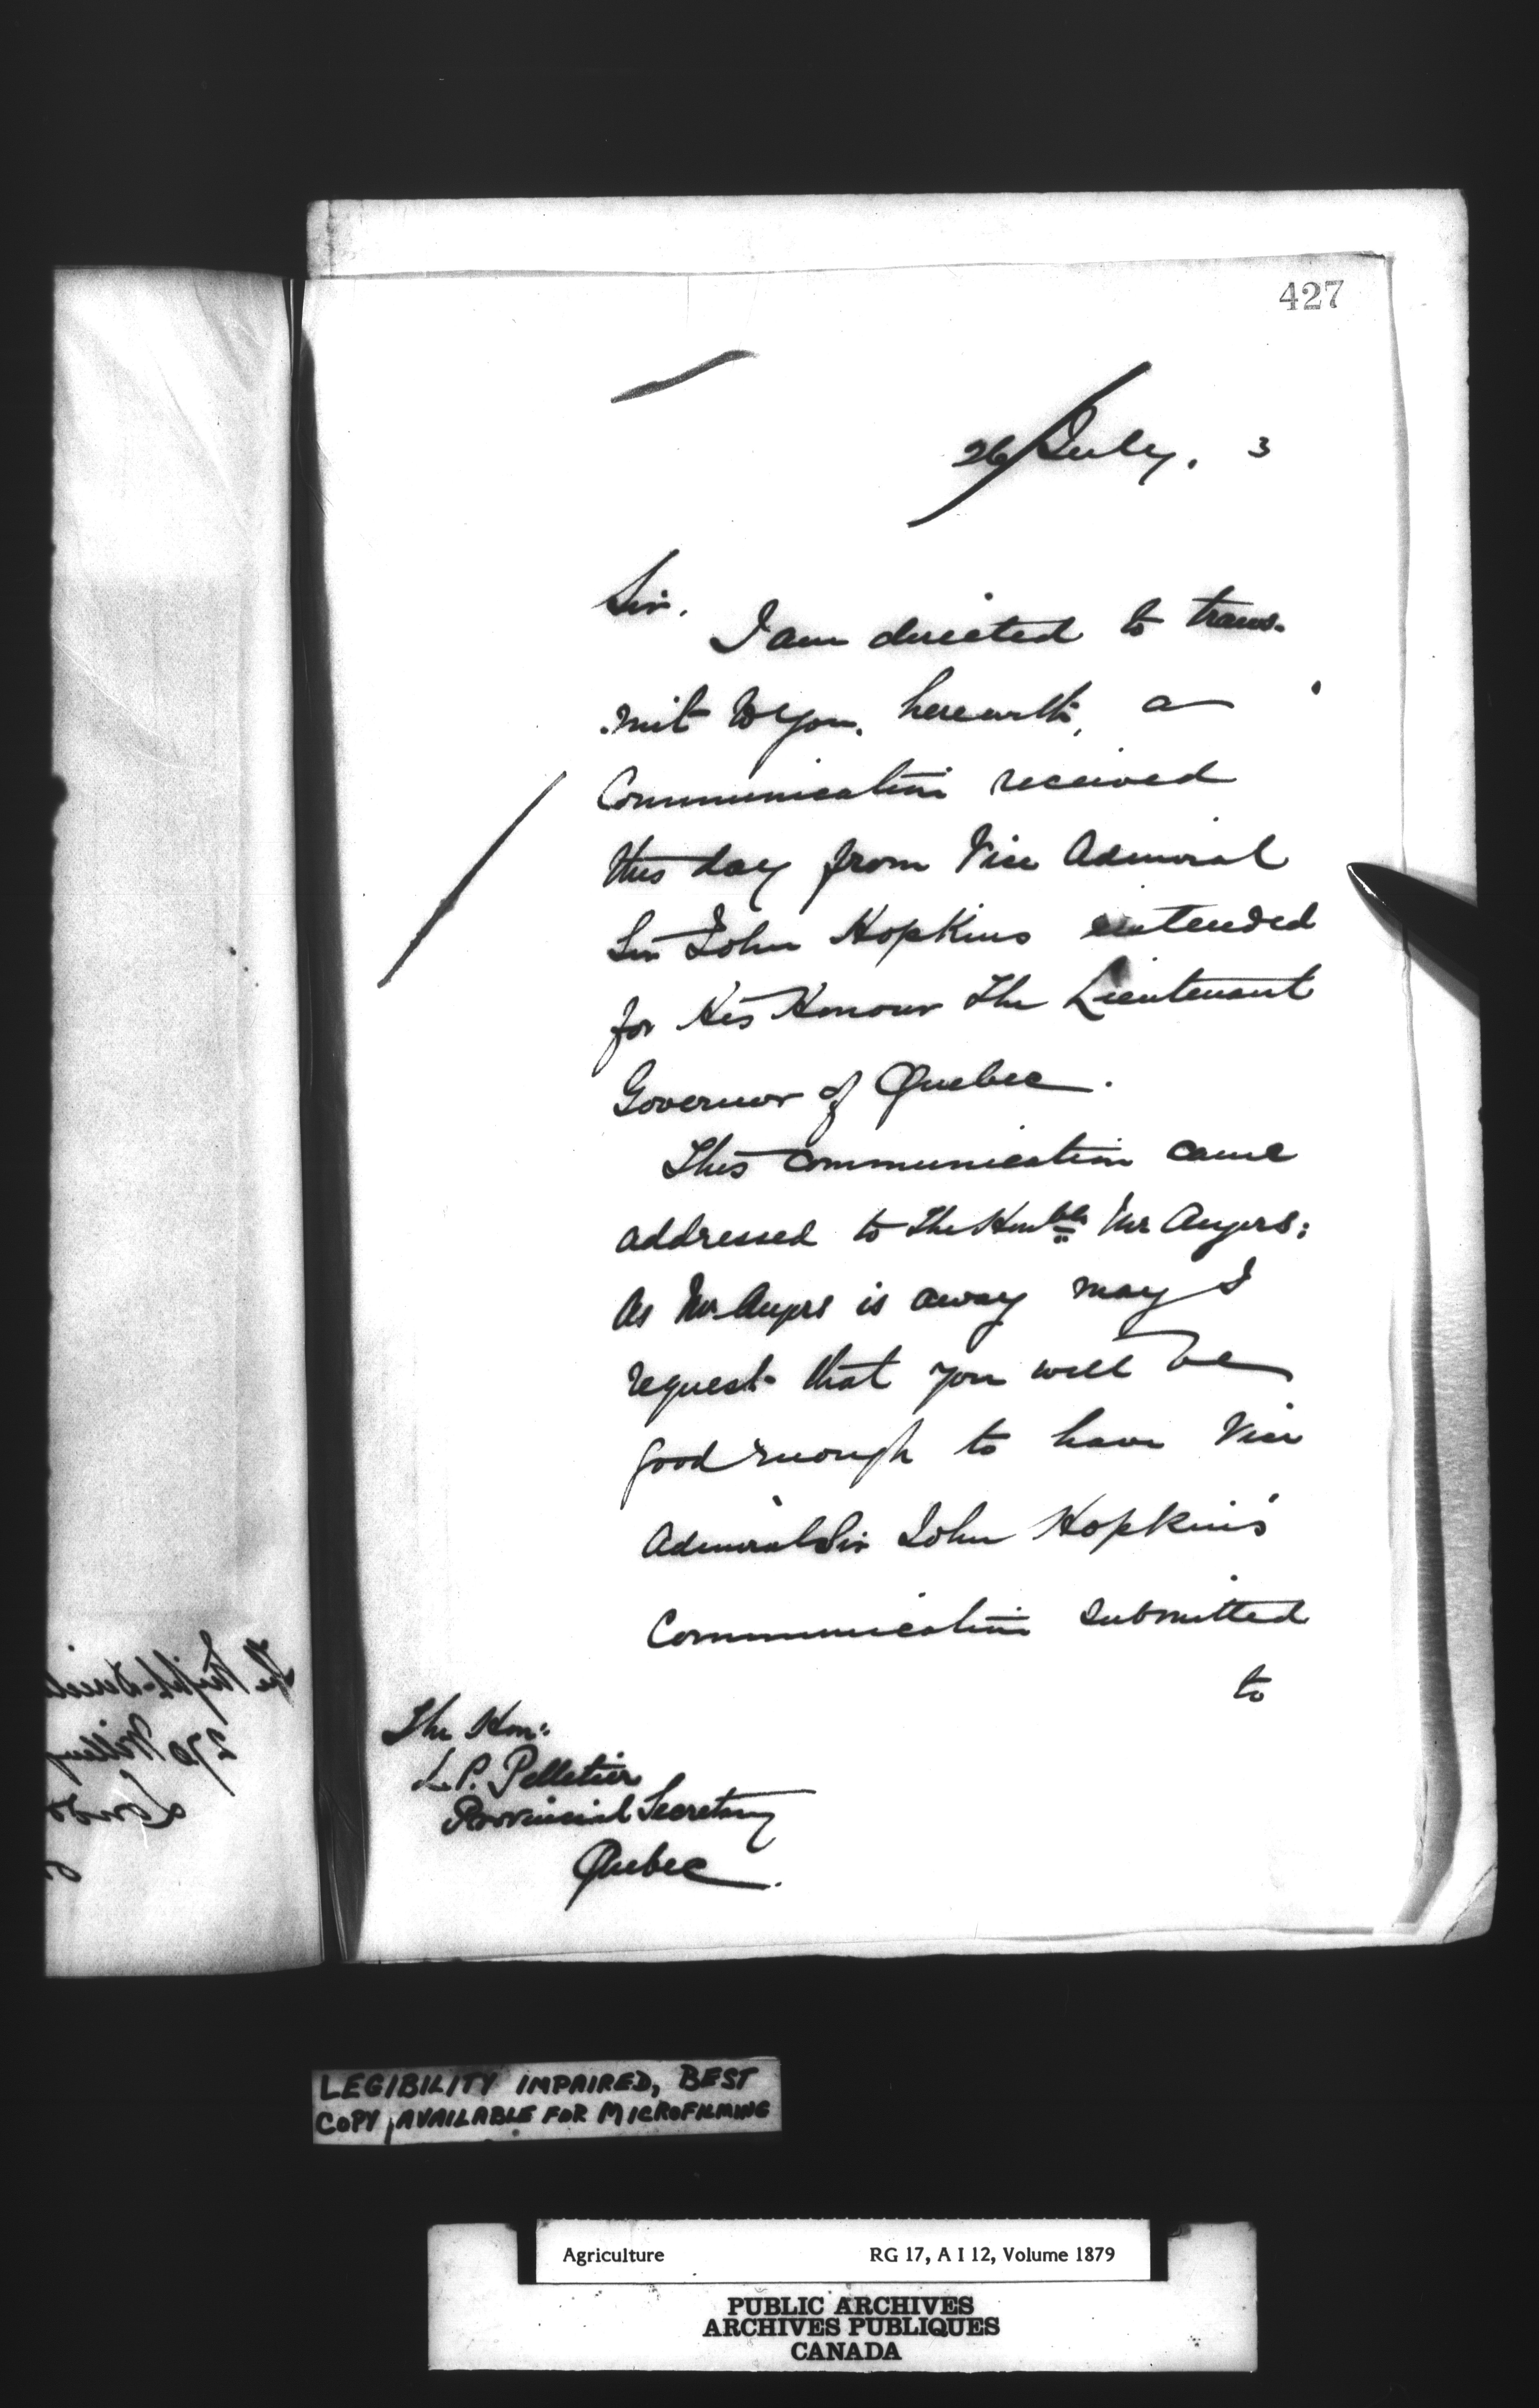 427
26 July. 3
Sir,
I am directed to trans-
mit to you, herewith, a
Communication received
this day from Vice Admiral
Sir John Hopkins intended
for His Honour The Lieutenant
Governor of Quebec.
This communication came
addressed to The Honble Mr Angers;
As Mr Angers is away may I
request that you will be
good enough to have Vice
Admiral Sir John Hopkins'
Communication submitted
to
The Hon:
L. P. Pelletier
Provincial Secretary
Quebec.
LEGIBILITY IMPAIRED, BEST
COPY AVAILABLE FOR MICROFILMING
Agriculture RG 17, A I 12, Volume 1879
PUBLIC ARCHIVES
ARCHIVES PUBLIQUES
CANADA